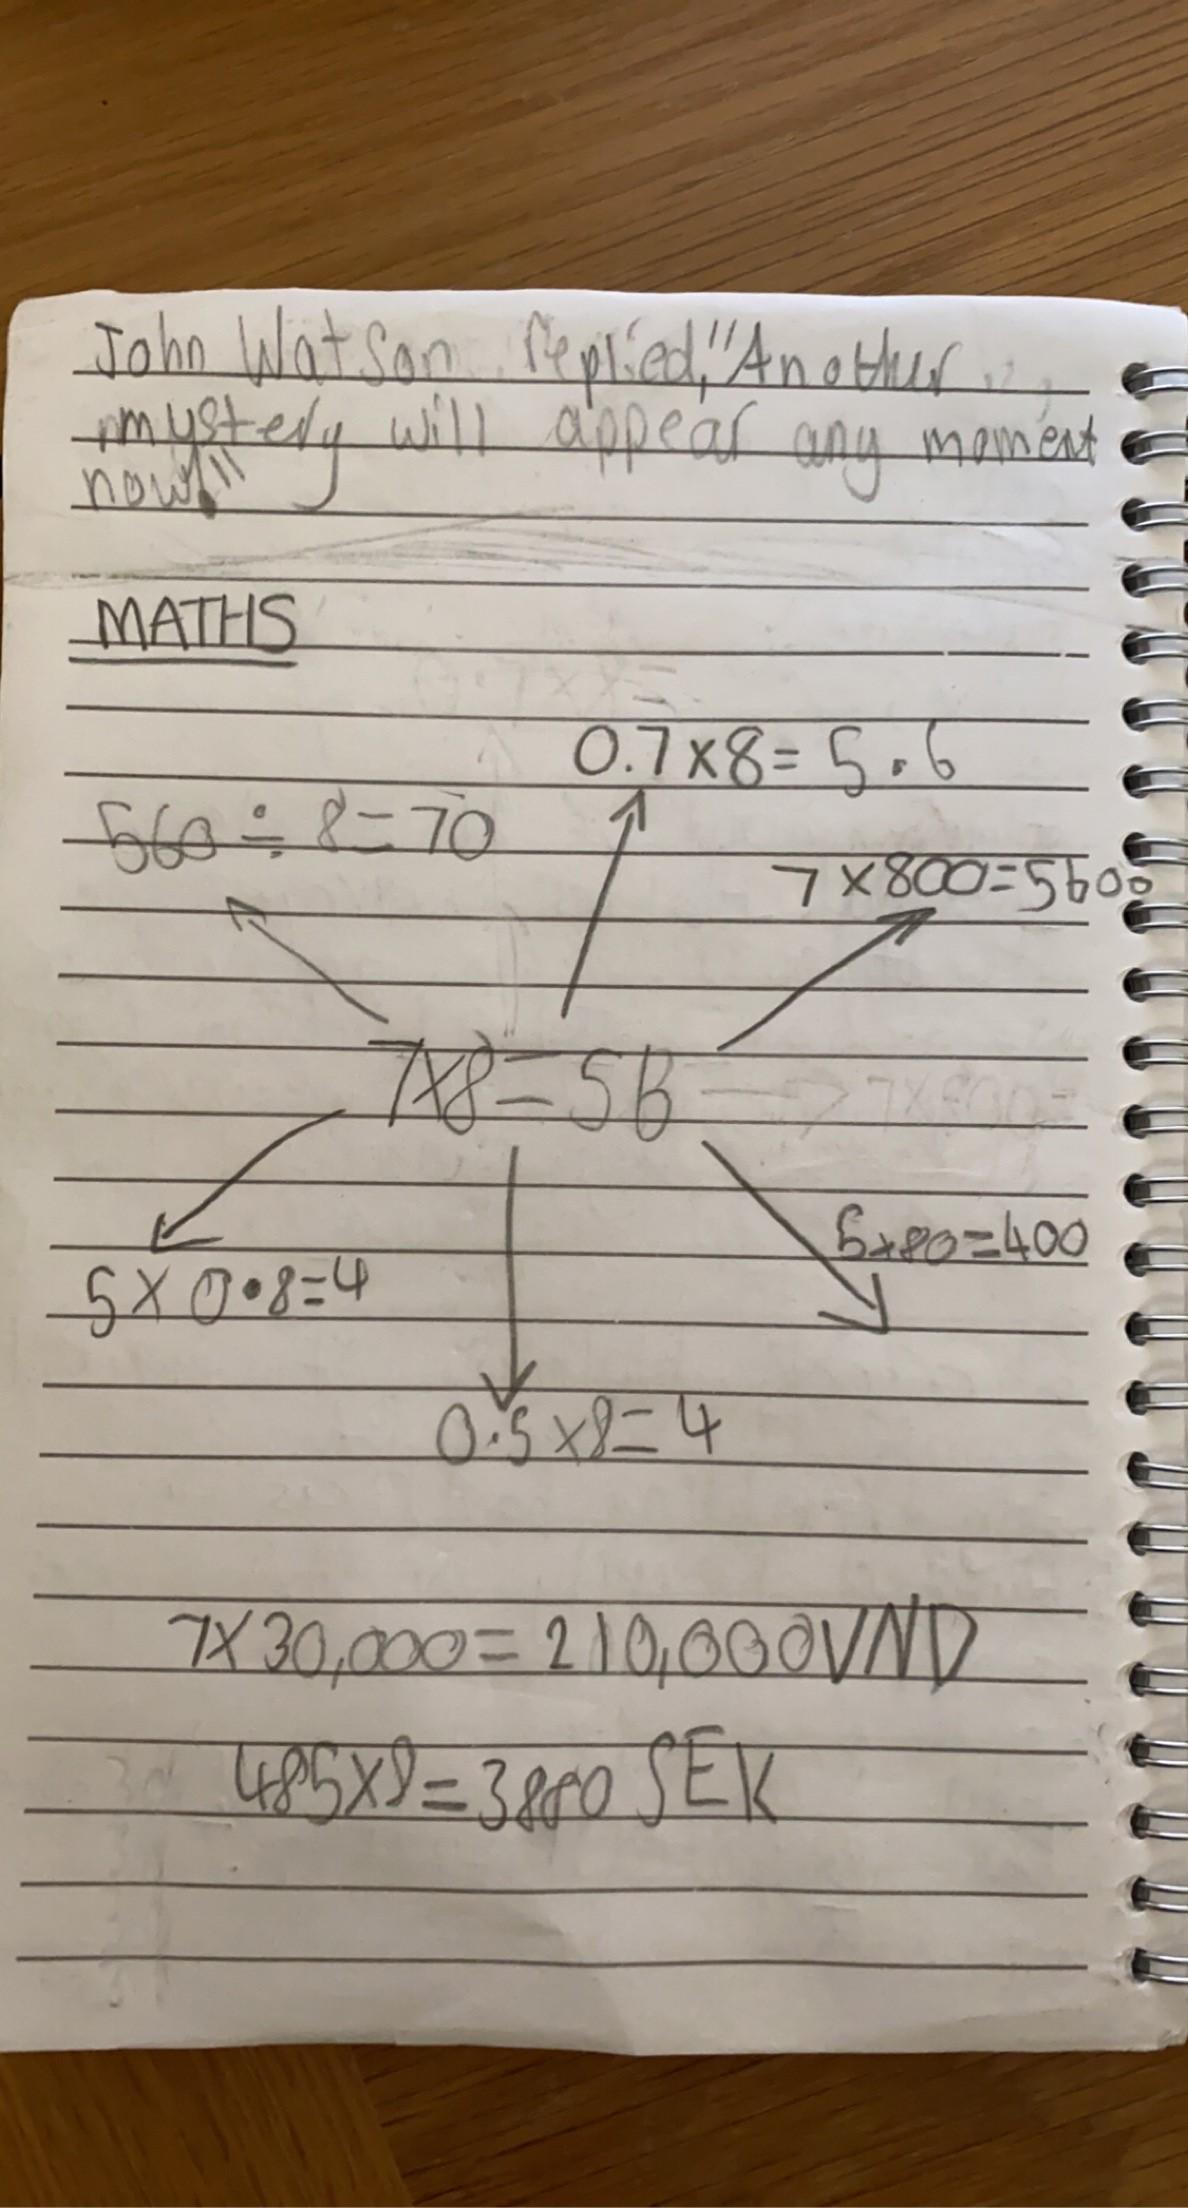 John Watson replied, "Another
mystery will appear any moment
now!"
MATHS
0.7x8= 5.6
560 ÷ 8=70
7 x800=5600
7x8=56
5x80=400
5x 0.8=4
0.5 x8= 4
7x30,000= 210,000VND
485x8=3880 SEK